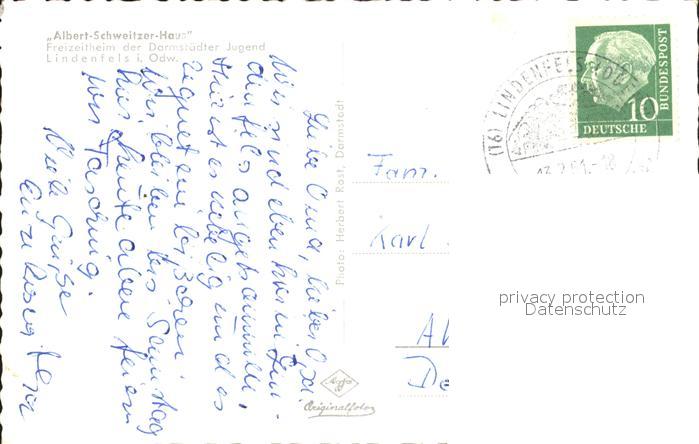 „Albert-Schweitzer-Haus"
Freizeitheim der Darmstädter Jugend
Lindenfels i. Odw.
Liebe Oma, lieber Opa!
Wir sind eben hier in Lin-
denfels angekommen.
Hier ist es nebelig und es
regnet ein bißchen.
Wir bleiben bis Samstag
hier. Heute Abend feiern
wir Fasching.
Viele Grüße
Photo: Herbert Rost, Darmstadt
Agfa
Originalfoto
Fam.
Karl
(16) LINDENFELS
10
DEUTSCHE
BUNDESPOST
privacy protection
Datenschutz